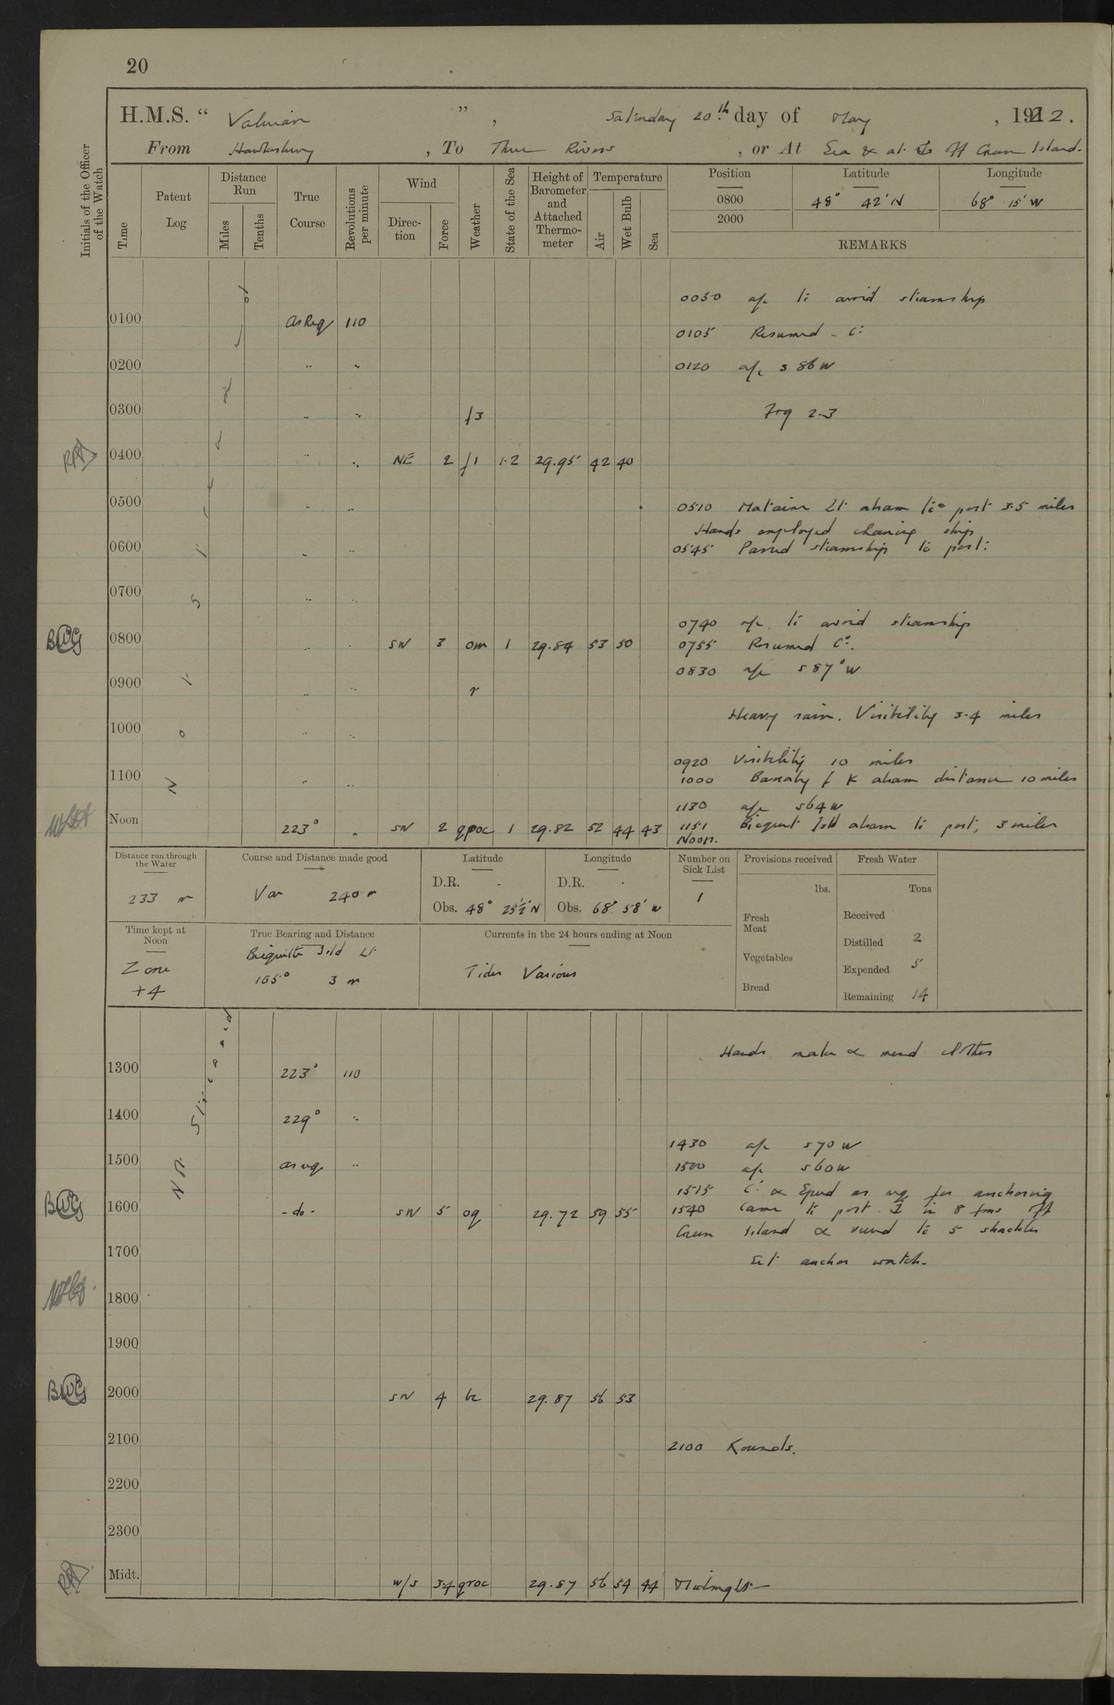 20
H.M.S. " Valerian ", Saturday 20th day of May, 1922.
From Hawkesbury, To Three Rivers, or At Sea & at off Crane Island.
Initials of the Officer of the Watch
Time
Patent Log
Distance Run
Miles
Tenths
True Course
Revolutions per minute
Wind
Direction
Force
Weather
State of the Sea
Height of Barometer and Attached Thermometer
Temperature
Air
Wet Bulb
Sea
Position
Latitude
Longitude
0800 48° 42' N 68° 15' W
2000
REMARKS
0050 a/c to avoid steamship
0100 As Req 110
0105 Resumed Co
0200 " "
0120 a/c S 86 W
0300 " " f3
Fog 2-3
0400 " " NE 2 f1 1.2 29.95 42 40
0500 " "
0510 Matane Lt abeam to port 3.5 miles
Hands employed cleaning ship
0600 " "
0545 Passed steamship to port.
0700 " "
0740 a/c to avoid steamship
BWG 0800 " " SW 3 om 1 29.84 53 50
0755 Resumed Co.
0830 a/c S 87° W
0900 " " r
Heavy rain. Visibility 3-4 miles
1000 " "
0920 Visibility 10 miles
1100 " "
1000 Barnaby abeam distance 10 miles
1130 a/c S64W
Noon 223° " SW 2 qpoc 1 29.82 52 44 43
1151 Bicquet Isld abeam to port, 3 miles
Noon.
No Streamed
Distance run through the Water
233 m
Course and Distance made good
Var 240 m
Latitude
D.R. -
Obs. 48° 25½' N
Longitude
D.R. -
Obs. 68° 58' W
Number on Sick List
1
Provisions received
lbs.
Fresh Meat
Vegetables
Bread
Fresh Water
Tons
Received
Distilled 2
Expended 5
Remaining 14
Time kept at Noon
Zone +4
True Bearing and Distance
Bicquette Isld Lt
165° 3 m
Currents in the 24 hours ending at Noon
Tides Various
Not Streamed
Hands make & mend clothes
1300 223° 110
1400 229° "
1430 a/c S70W
1500 as req "
1500 a/c S60W
1515 Co & Speed as req for anchoring
BWG 1600 -do- SW 5 oq 29.72 59 55
1540 Came to port in 8 fms off
Crane Island & veered to 5 shackles
1700
Set anchor watch.
1800
1900
BWG 2000 SW 4 bc 29.87 56 53
2100
2100 Rounds.
2200
2300
Midt. W/S 3-4 qroc 29.87 56 54 44 Midnight